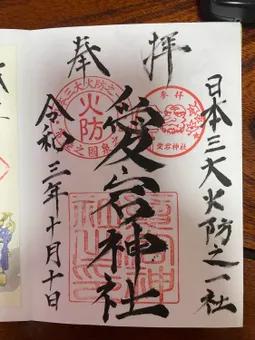 奉拝
日本三大火防之一社
愛宕神社
令和三年十月十日
火防
参拝
愛宕神社